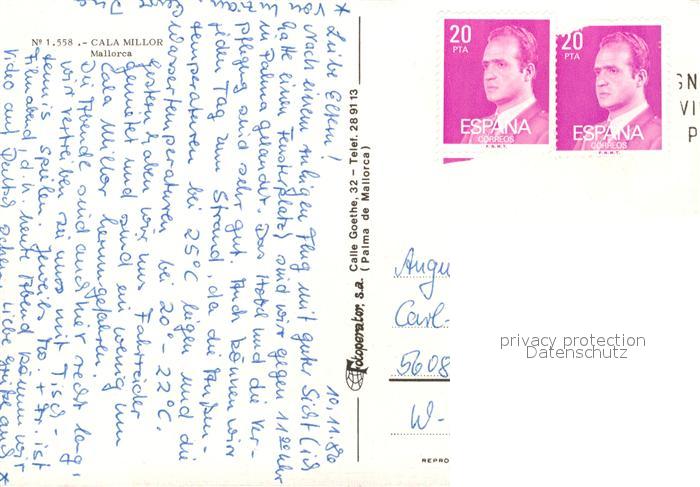 Nº 1.558 .- CALA MILLOR
Mallorca
10.11.86
Liebe Eltern!
Nach einem ruhigen Flug mit guter Sicht (ich
hatte einen Fensterplatz) sind wir gegen 11 Uhr
in Palma gelandet. Das Hotel und die Ver-
pflegung sind sehr gut. Auch können wir
jeden Tag zum Strand, da die Außen-
temperaturen bei 25°C liegen und die
Wassertemperaturen bei 20°-22°C.
Gestern haben wir uns Fahrräder
gemietet und sind ein wenig um
Cala Millor herumgefahren.
Die Abende sind auch hier recht lang.
Wir vertreiben sie uns mit Tisch-
tennis spielen. Jeweils Mo. + Fr. ist
Filmabend, d.h. heute Abend können wir
Video auf Deutsch sehen. Liebe Grüße
Fotoperator, s.a. Calle Goethe, 32 – Telef: 28 9113
(Palma de Mallorca)
20
PTA
ESPAÑA
CORREOS
F.N.M.T.
20
PTA
ESPAÑA
CORREOS
F.N.M.T.
GN
VI
P
Augu
Carl-
5608
W-
REPRO
privacy protection
Datenschutz